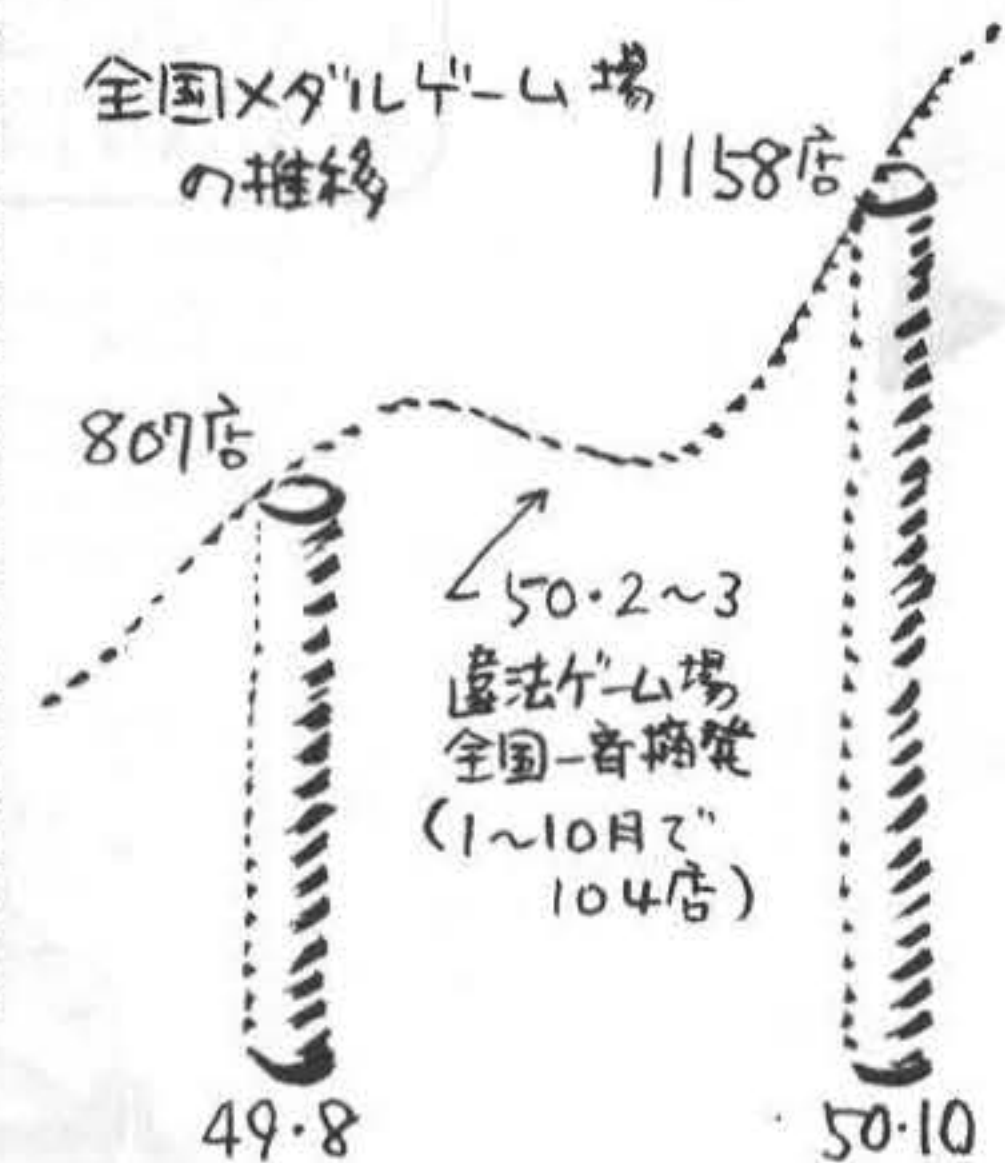 全国メダルゲーム場
の推移
1158店
807店
50・2〜3
違法ゲーム場
全国一斉摘発
(1〜10月で
104店)
49・8
50・10